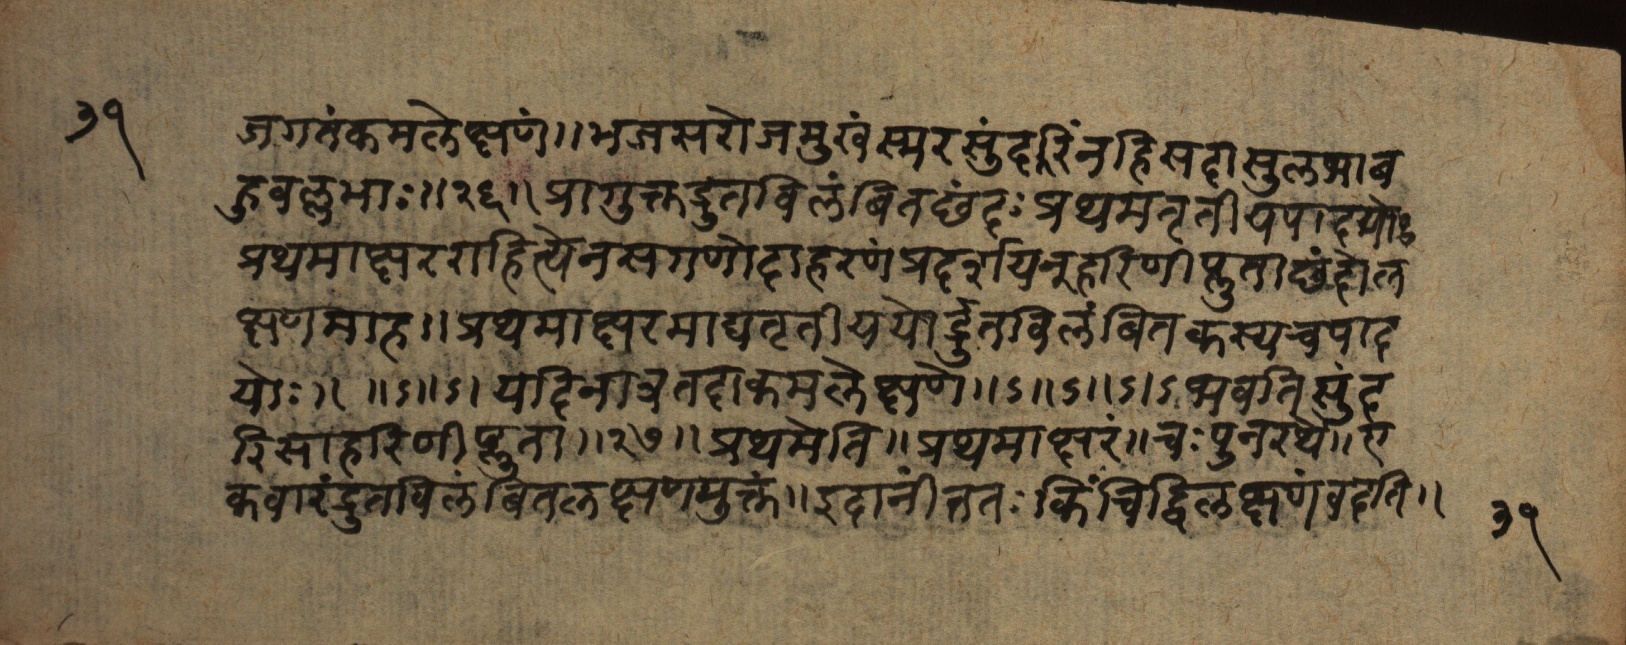 ३१
जगतंकमलेक्षणं॥भजसरोजमुखंस्मरसुंदरिंनहिसदासुलभाब
हुवल्लभाः॥२६॥प्रागुक्तद्रुतविलंबितछंदः प्रथमतृतीयपादयोः
प्रथमाक्षरराहित्येनसगणोदाहरणं प्रदर्शयन्हरिणीप्लुताछंदोल
क्षणमाह॥प्रथमाक्षरमाद्यतृतीययोर्द्रुतविलंबितकस्यचपाद
योः॥ ॥ऽ॥ऽ। यदिनात्रतदाकमलेक्षणे॥ऽ॥ऽ॥ऽ।ऽ भवतिसुंद
रिसाहरिणीप्लुता॥२७॥प्रथमेति॥प्रथमाक्षरं॥चःपुनरर्थे॥ए
कवारंद्रुतविलंबितलक्षणमुक्तं॥इदानींततः किंचिद्विलक्षणंवदति॥
३१